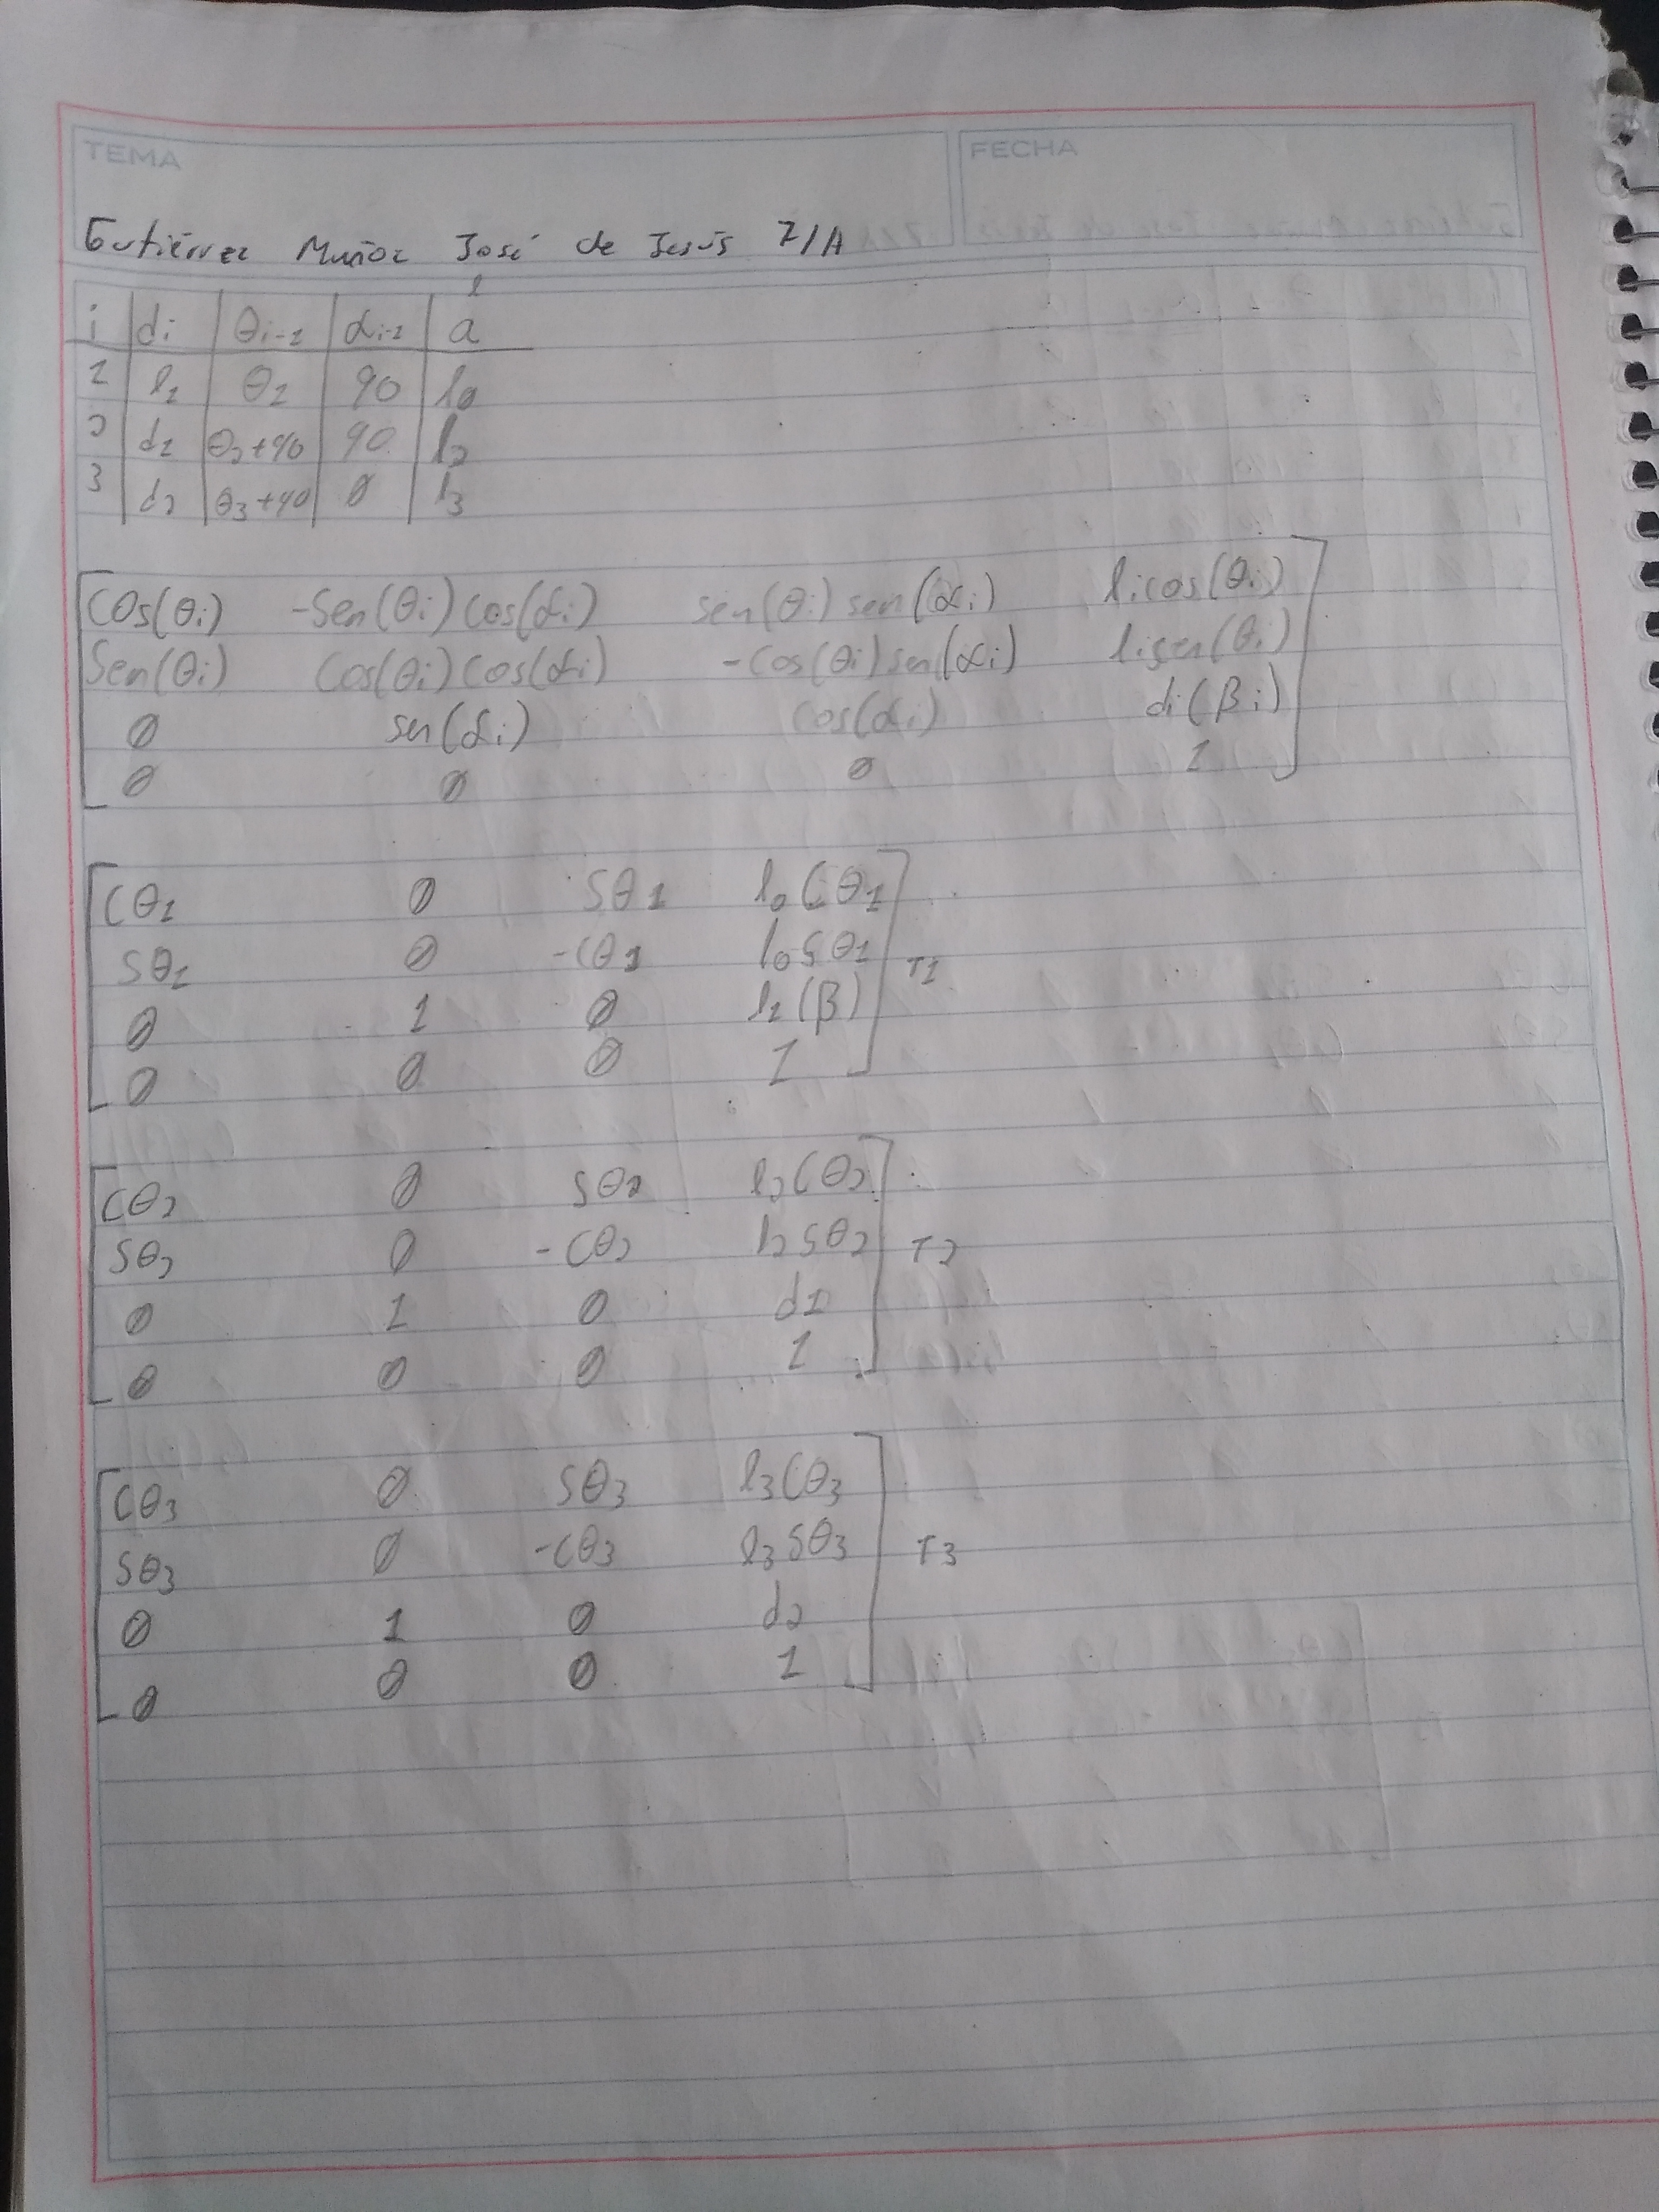 TEMA FECHA
Gutiérrez Muñoz José de Jesús 7/A
l
i di θi-1 αi-1 a
1 l1 θ1 90 l0
2 d1 θ2+90 90 l2
3 d2 θ3+90 0 l3
Cos(θi) -Sen(θi)cos(αi) sen(θi)sen(αi) licos(θi)
Sen(θi) Cos(θi)Cos(αi) -Cos(θi)sen(αi) lisen(θi)
0 sen(αi) cos(αi) di(βi)
0 0 0 1
Cθ1 0 Sθ1 l0Cθ1
Sθ1 0 -Cθ1 l0Sθ1 T1
0 1 0 l1(β)
0 0 0 1
Cθ2 0 Sθ2 l2Cθ2
Sθ2 0 -Cθ2 l2Sθ2 T2
0 1 0 d1
0 0 0 1
Cθ3 0 Sθ3 l3Cθ3
Sθ3 0 -Cθ3 l3Sθ3 T3
0 1 0 d2
0 0 0 1